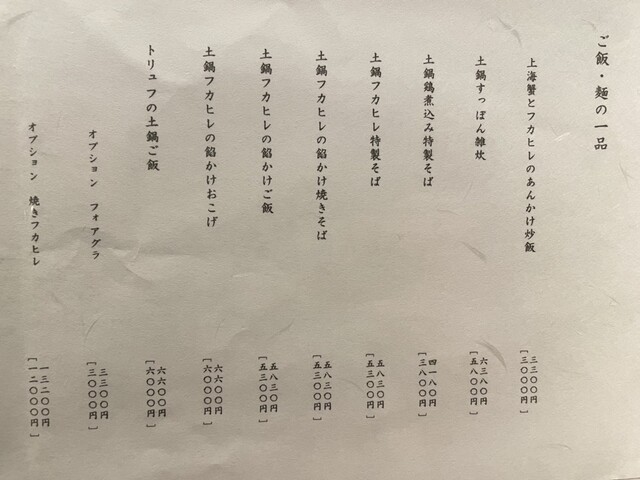 ご飯・麺の一品
上海蟹とフカヒレのあんかけ炒飯
三三〇〇円
[三〇〇〇円]
土鍋すっぽん雑炊
六三八〇円
[五八〇〇円]
土鍋鶏煮込み特製そば
四一八〇円
[三八〇〇円]
土鍋フカヒレ特製そば
五八三〇円
[五三〇〇円]
土鍋フカヒレの餡かけ焼きそば
五八三〇円
[五三〇〇円]
土鍋フカヒレの餡かけご飯
五八三〇円
[五三〇〇円]
土鍋フカヒレの餡かけおこげ
六六〇〇円
[六〇〇〇円]
トリュフの土鍋ご飯
六六〇〇円
[六〇〇〇円]
オプション フォアグラ
三三〇〇円
[三〇〇〇円]
オプション 焼きフカヒレ
一三二〇〇円
[一二〇〇〇円]